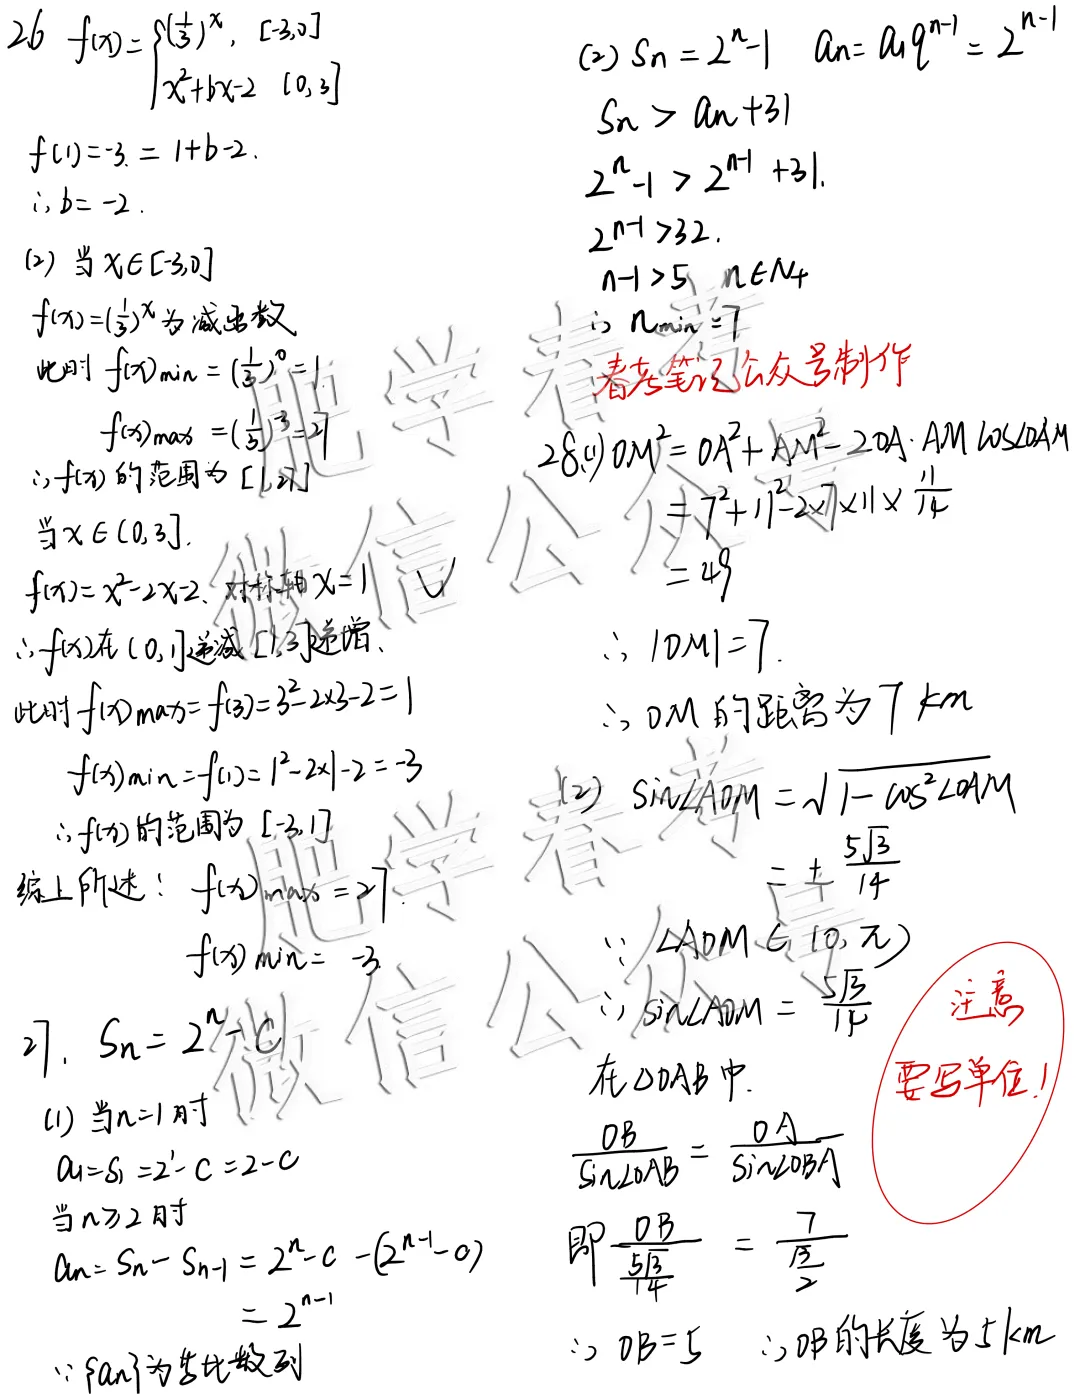 26 f(x)={(1/3)^x, [-3,0]
x²+bx-2 (0,3]
f(1)=-3.=1+b-2.
∴b=-2.
(2) 当x∈[-3,0]
f(x)=(1/3)^x为减函数
此时f(x)min=(1/3)^0=1
f(x)max=(1/3)^-3=27
∴f(x)的范围为[1,27]
当x∈(0,3].
f(x)=x²-2x-2、对称轴x=1
∴f(x)在(0,1]递减[1,3]递增、
此时f(x)max=f(3)=3²-2×3-2=1
f(x)min=f(1)=1²-2×1-2=-3
∴f(x)的范围为[-3,1]
综上所述：f(x)max=27.
f(x)min=-3.
27. Sn=2^n-c
(1) 当n=1时
a1=S1=2^1-c=2-c
当n≥2时
an=Sn-Sn-1=2^n-c-(2^(n-1)-c)
=2^(n-1)
∵{an}为等比数列
(2) Sn=2^n-1 an=a1q^(n-1)=2^(n-1)
Sn>an+31
2^n-1>2^(n-1)+31.
2^(n-1)>32.
n-1>5 n∈N+
∴nmin=7
春考笔记公众号制作
28.(1) OM²=OA²+AM²-2OA·AM cos∠OAM
=7²+11²-2×7×11×11/14
=49
∴|OM|=7.
∴OM的距离为7km
(2) sin∠AOM=√(1-cos²∠OAM)
=±5√3/14
∵∠AOM∈(0,π)
∴sin∠AOM=5√3/14
在△OAB中.
OB/sin∠OAB=OA/sin∠OBA
即OB/(5√3/14)=7/(√3/2)
∴OB=5 ∴OB的长度为5km
注意
要写单位!
肥学春考
微信公众号
肥学春考
微信公众号